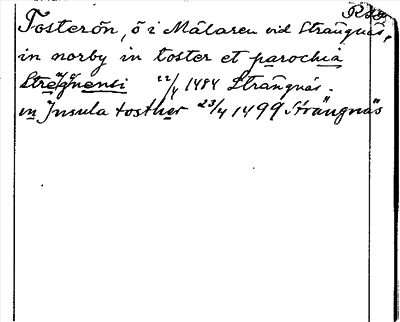 Tosterön, ö i Mälaren vid Strängnäs,
in norby in toster et parochia
Stregnensi 22/4 1484 Strängnäs.
in Insula tosther 23/4 1499 Strängnäs